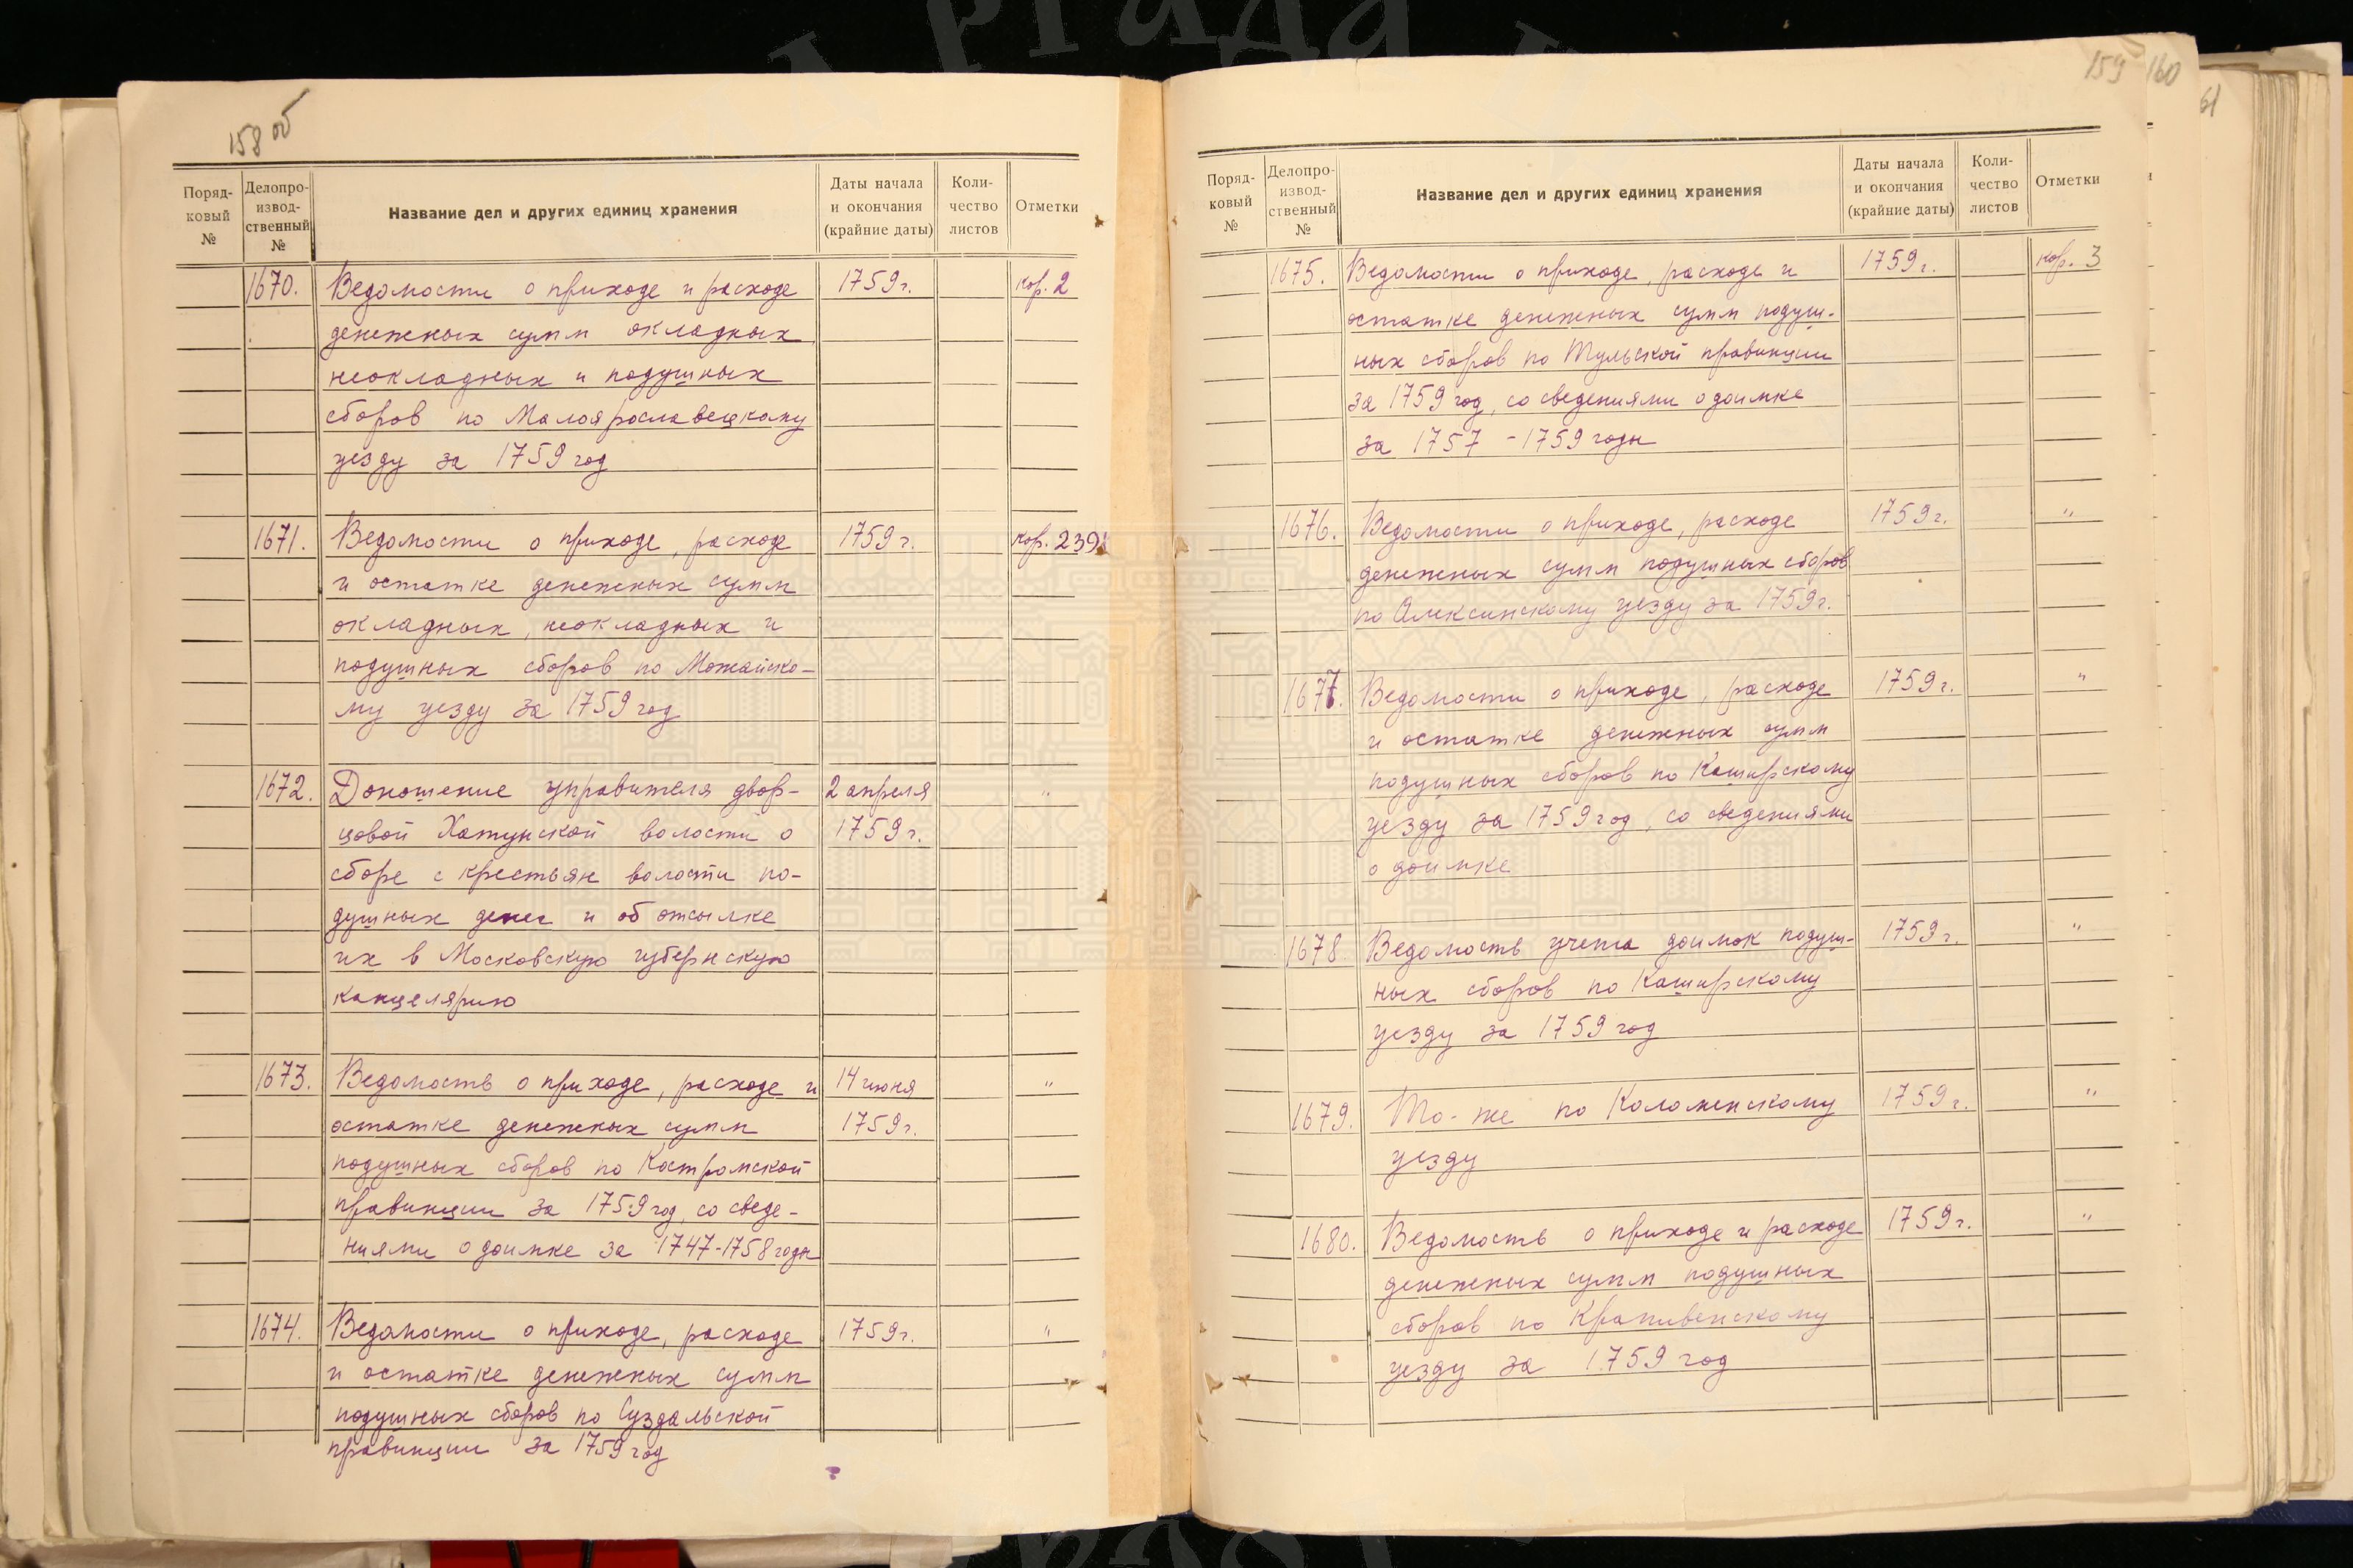 158 об
Поряд-
ковый
№
Делопро-
извод-
ственный
№
Название дел и других единиц хранения
Даты начала
и окончания
(крайние даты)
Коли-
чество
листов
Отметки
1670. Ведомости о приходе и расходе 1759 г. кор. 2
денежных сумм окладных
неокладных и подушных
сборов по Малоярославецкому
уезду за 1759 год
1671. Ведомости о приходе, расходе 1759 г. кор. 239
и остатке денежных сумм
окладных, неокладных и
подушных сборов по Можайско-
му уезду за 1759 год
1672. Доношение управителя двор- 2 апреля "
цовой Хатунской волости о 1759 г.
сборе с крестьян волости по-
душных денег и об отсылке
их в Московскую губернскую
канцелярию
1673. Ведомость о приходе, расходе и 14 июня "
остатке денежных сумм 1759 г.
подушных сборов по Костромской
провинции за 1759 год, со сведе-
ниями о доимке за 1747-1758 годы
1674. Ведомости о приходе, расходе 1759 г. "
и остатке денежных сумм
подушных сборов по Суздальской
провинции за 1759 год
159 160
61
Поряд-
ковый
№
Делопро-
извод-
ственный
№
Название дел и других единиц хранения
Даты начала
и окончания
(крайние даты)
Коли-
чество
листов
Отметки
1675. Ведомости о приходе, расходе и 1759 г. кор. 3
остатке денежных сумм подуш-
ных сборов по Тульской провинции
за 1759 год, со сведениями о доимке
за 1757 - 1759 годы
1676. Ведомости о приходе, расходе 1759 г. "
денежных сумм подушных сборов
по Алексинскому уезду за 1759 г.
1677. Ведомости о приходе, расходе 1759 г. "
и остатке денежных сумм
подушных сборов по Каширскому
уезду за 1759 год, со сведениями
о доимке
1678. Ведомость учета доимок подуш- 1759 г. "
ных сборов по Каширскому
уезду за 1759 год
1679. То-же по Коломенскому 1759 г. "
уезду
1680. Ведомость о приходе и расходе 1759 г. "
денежных сумм подушных
сборов по Крапивенскому
уезду за 1759 год